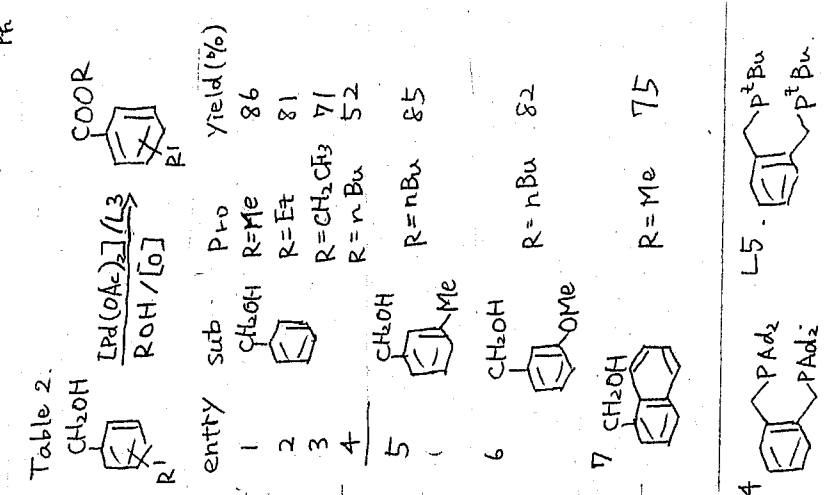 Ph
Table 2.
CH2OH
R1
[Pd(OAc)2]/L3
ROH/[O]
COOR
R1
entry sub. Pro Yield(%)
1 CH2OH R=Me 86
2 R=Et 81
3 R=CH2CH3 71
4 R=nBu 52
5 CH2OH Me R=nBu 85
6 CH2OH OMe R=nBu 82
7 CH2OH R=Me 75
4 PAd2 PAd2 L5. PtBu PtBu.